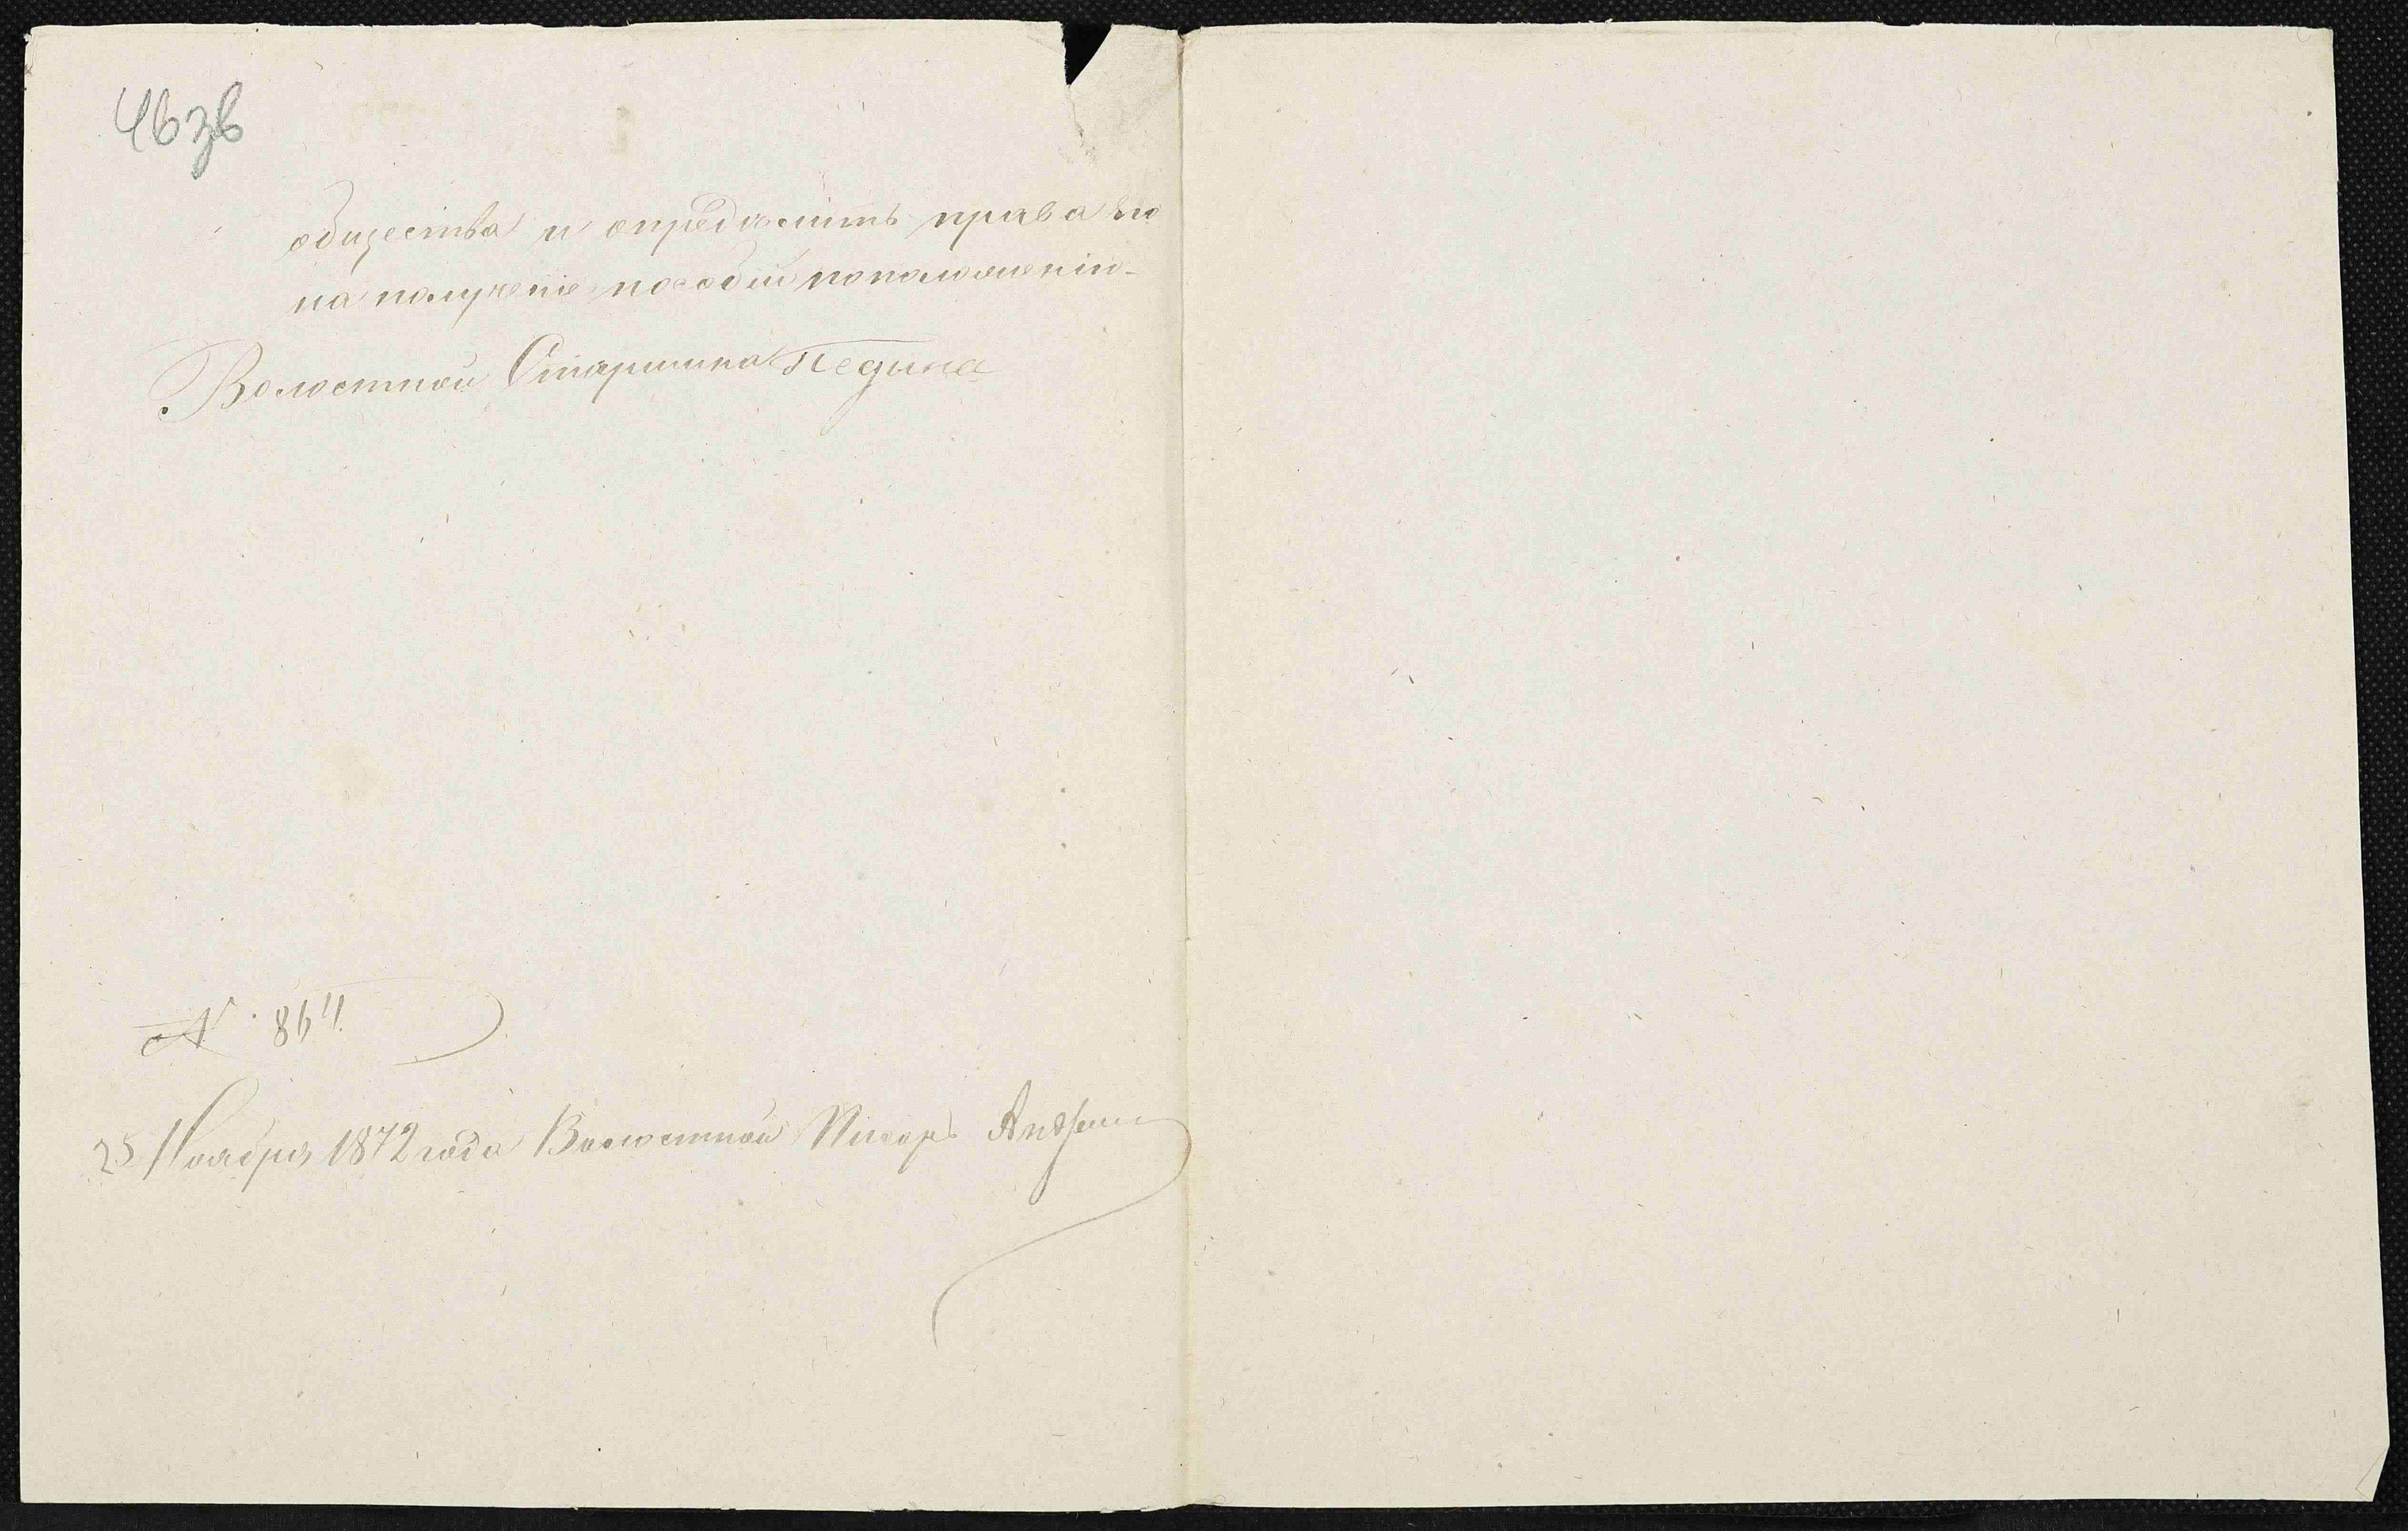 46 зв
общества и определить права его
на получение пособий по положенію.
Волостной Старшина Педина
№ 864.
25 Ноября 1872 года Волостной Писарь